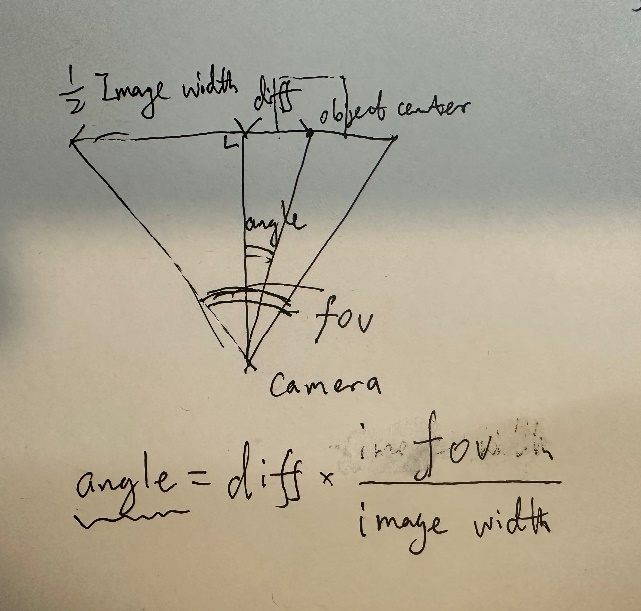 1/2 Image width diff
object center
angle
fov
Camera
angle = diff × fov / image width